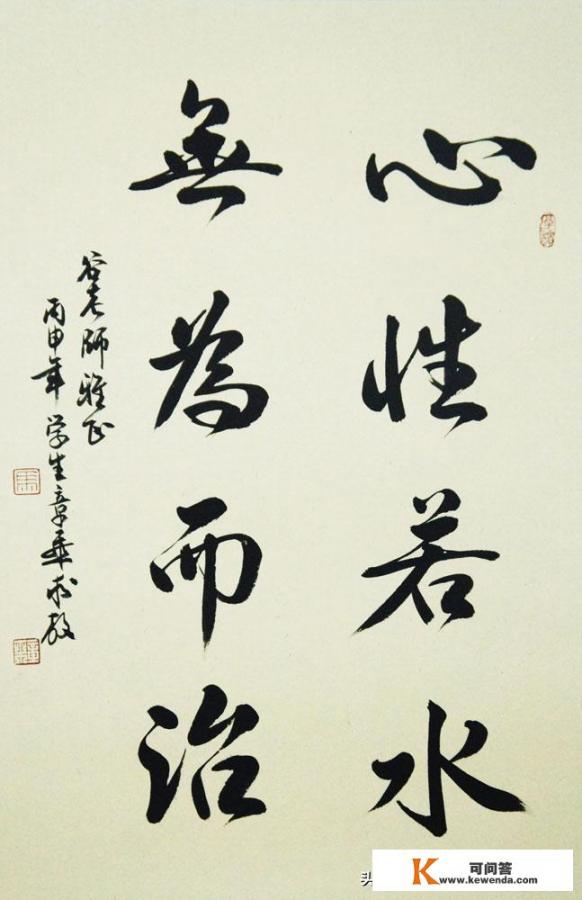 心性若水
無為而治
谷老師雅正
丙申年学生章華求教
K 可问答
www.kewenda.com